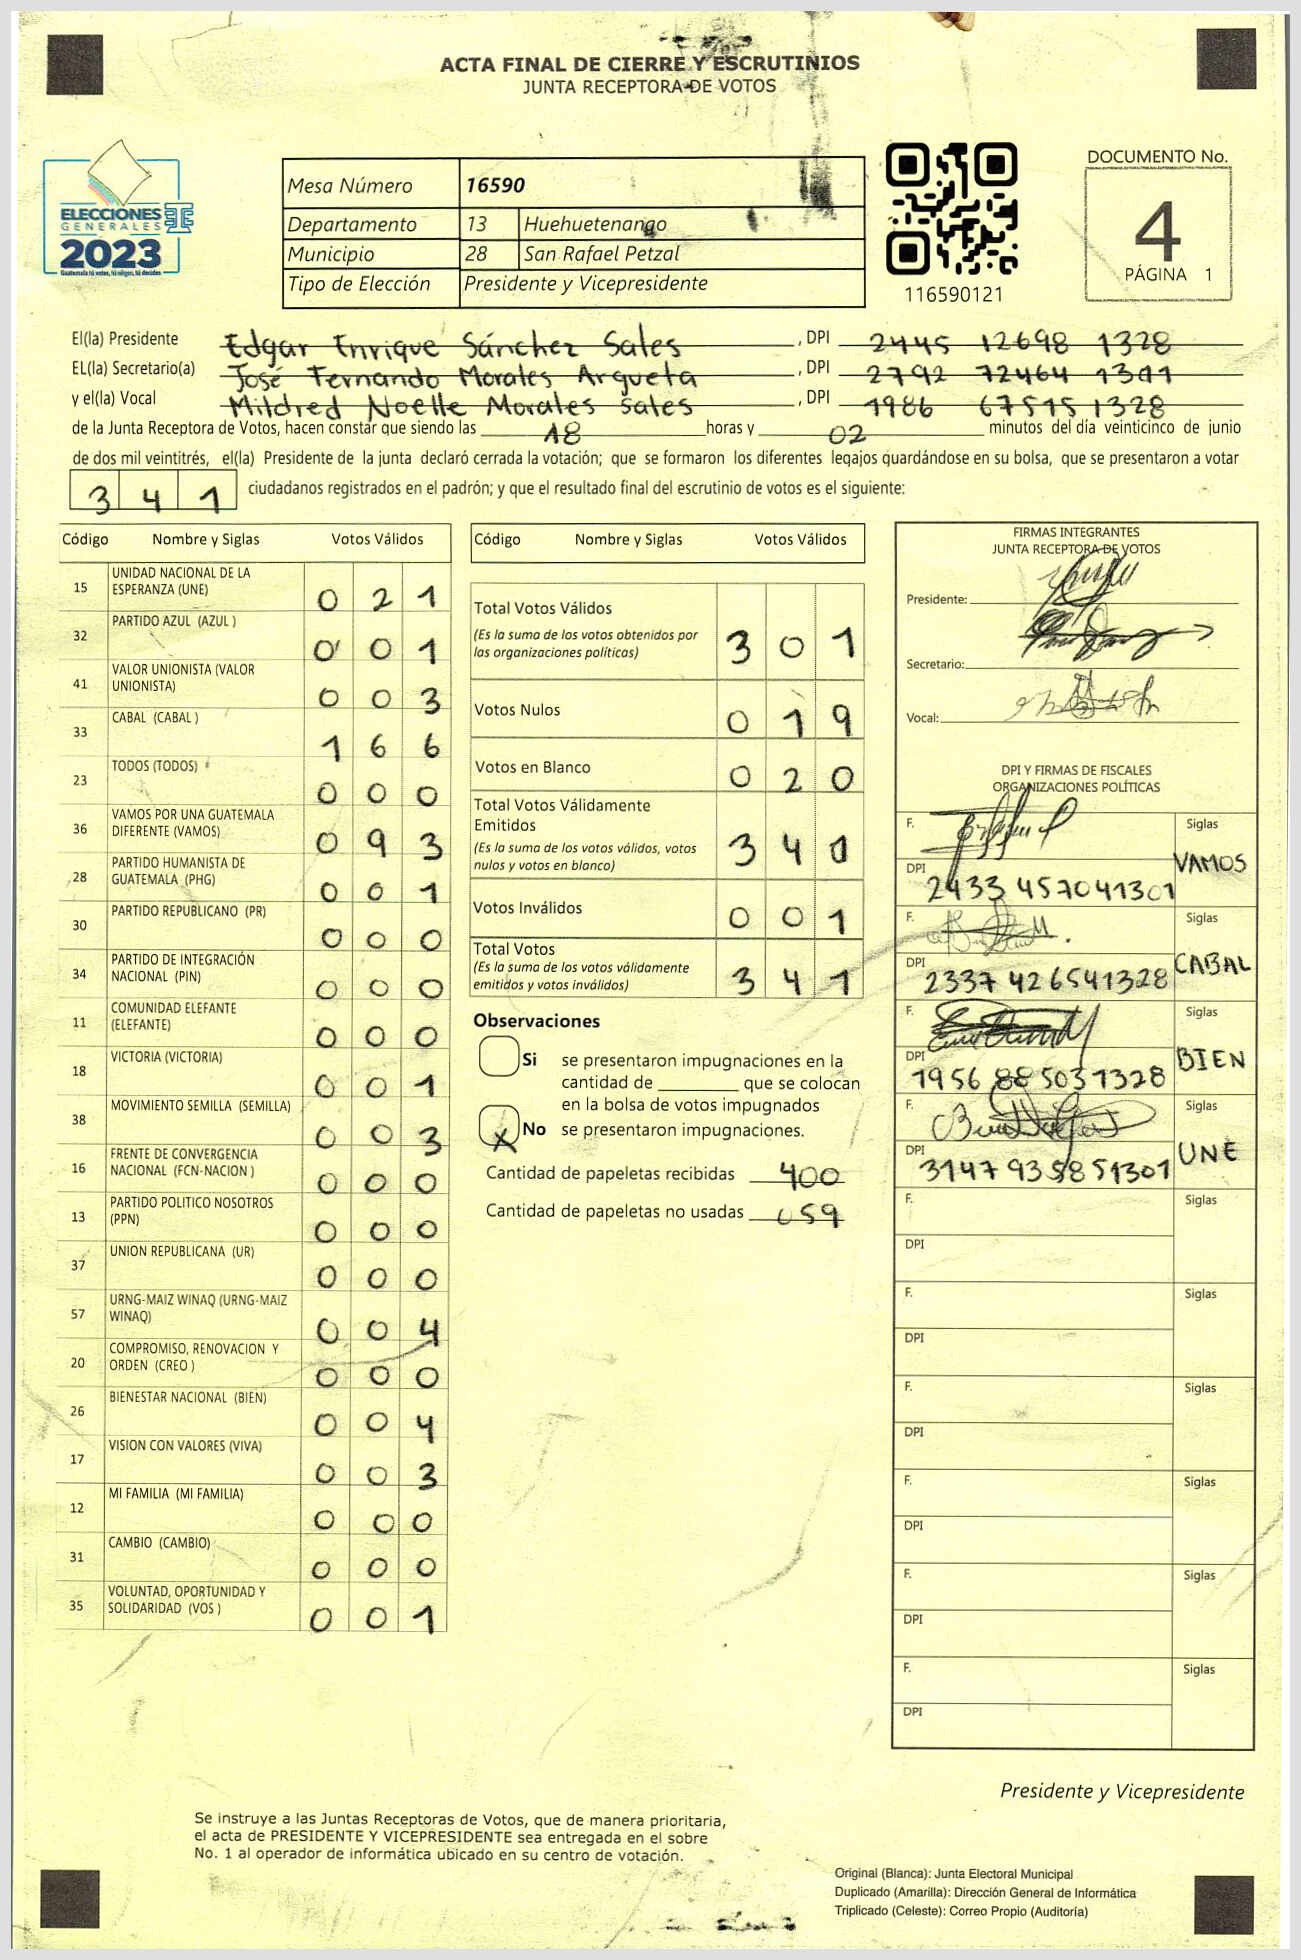 ACTA FINAL DE CIERRE Y ESCRUTINIOS
JUNTA RECEPTORA DE VOTOS
ELECCIONES
GENERALES
2023
Guatemala tú votas, tú eliges, tú decides
Mesa Número 16590
Departamento 13 Huehuetenango
Municipio 28 San Rafael Petzal
Tipo de Elección Presidente y Vicepresidente
116590121
DOCUMENTO No.
4
PÁGINA 1
El(la) Presidente Edgar Enrique Sánchez Sales, DPI 2445 12698 1328
EL(la) Secretario(a) José Fernando Morales Argueta, DPI 2792 72464 1301
y el(la) Vocal Mildred Noelle Morales Sales, DPI 1986 67515 1328
de la Junta Receptora de Votos, hacen constar que siendo las 18 horas y 02 minutos del día veinticinco de junio
de dos mil veintitrés, el(la) Presidente de la junta declaró cerrada la votación; que se formaron los diferentes legajos guardándose en su bolsa, que se presentaron a votar
341 ciudadanos registrados en el padrón; y que el resultado final del escrutinio de votos es el siguiente:
Código Nombre y Siglas Votos Válidos
15 UNIDAD NACIONAL DE LA ESPERANZA (UNE) 0 2 1
32 PARTIDO AZUL (AZUL ) 0 0 1
41 VALOR UNIONISTA (VALOR UNIONISTA) 0 0 3
33 CABAL (CABAL ) 1 6 6
23 TODOS (TODOS) 0 0 0
36 VAMOS POR UNA GUATEMALA DIFERENTE (VAMOS) 0 9 3
28 PARTIDO HUMANISTA DE GUATEMALA (PHG) 0 0 1
30 PARTIDO REPUBLICANO (PR) 0 0 0
34 PARTIDO DE INTEGRACIÓN NACIONAL (PIN) 0 0 0
11 COMUNIDAD ELEFANTE (ELEFANTE) 0 0 0
18 VICTORIA (VICTORIA) 0 0 1
38 MOVIMIENTO SEMILLA (SEMILLA) 0 0 3
16 FRENTE DE CONVERGENCIA NACIONAL (FCN-NACION ) 0 0 0
13 PARTIDO POLITICO NOSOTROS (PPN) 0 0 0
37 UNION REPUBLICANA (UR) 0 0 0
57 URNG-MAIZ WINAQ (URNG-MAIZ WINAQ) 0 0 4
20 COMPROMISO, RENOVACION Y ORDEN (CREO ) 0 0 0
26 BIENESTAR NACIONAL (BIEN) 0 0 4
17 VISION CON VALORES (VIVA) 0 0 3
12 MI FAMILIA (MI FAMILIA) 0 0 0
31 CAMBIO (CAMBIO) 0 0 0
35 VOLUNTAD, OPORTUNIDAD Y SOLIDARIDAD (VOS ) 0 0 1
Código Nombre y Siglas Votos Válidos
Total Votos Válidos 3 0 1
(Es la suma de los votos obtenidos por
las organizaciones políticas)
Votos Nulos 0 1 9
Votos en Blanco 0 2 0
Total Votos Válidamente
Emitidos 3 4 0
(Es la suma de los votos válidos, votos
nulos y votos en blanco)
Votos Inválidos 0 0 1
Total Votos 3 4 1
(Es la suma de los votos válidamente
emitidos y votos inválidos)
Observaciones
Si se presentaron impugnaciones en la
cantidad de ________ que se colocan
en la bolsa de votos impugnados
X No se presentaron impugnaciones.
Cantidad de papeletas recibidas 400
Cantidad de papeletas no usadas 059
FIRMAS INTEGRANTES
JUNTA RECEPTORA DE VOTOS
Presidente:
Secretario:
Vocal:
DPI Y FIRMAS DE FISCALES
ORGANIZACIONES POLÍTICAS
F. Siglas VAMOS
DPI 2433 457041301
F. Siglas CABAL
DPI 2337 426541328
F. Siglas BIEN
DPI 1956 885031328
F. Siglas UNE
DPI 3147 935851301
F. Siglas
DPI
F. Siglas
DPI
F. Siglas
DPI
F. Siglas
DPI
F. Siglas
DPI
F. Siglas
DPI
Presidente y Vicepresidente
Se instruye a las Juntas Receptoras de Votos, que de manera prioritaria,
el acta de PRESIDENTE Y VICEPRESIDENTE sea entregada en el sobre
No. 1 al operador de informática ubicado en su centro de votación.
Original (Blanca): Junta Electoral Municipal
Duplicado (Amarilla): Dirección General de Informática
Triplicado (Celeste): Correo Propio (Auditoría)